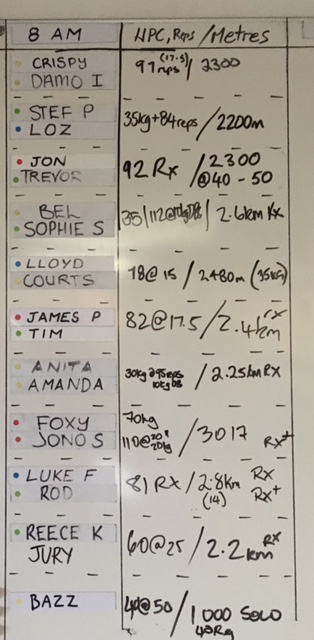 8 AM HPC, Reps / Metres
CRISPY
DAMO I
97 reps (17.5) / 2300
STEF P
LOZ
35kg + 84 reps / 2200m
JON
TREVOR
92 Rx / 2300
@40 - 50
BEL
SOPHIE S
35 / 112 @ / 2.6km Rx
LLOYD
COURTS
78 @ 15 / 2480m (35kg)
JAMES P
TIM
82 @ 17.5 / 2.4km rx
ANITA
AMANDA
30kg 10kg DB / 2.25km Rx
FOXY
JONO S
70kg
110 @ 20kg / 3017 Rx+
LUKE F
ROD
81 Rx / 2.8km Rx
(14) Rx+
REECE K
JURY
60 @ 25 / 2.2km Rx
BAZZ
40 @ 50 / 1000 SOLO